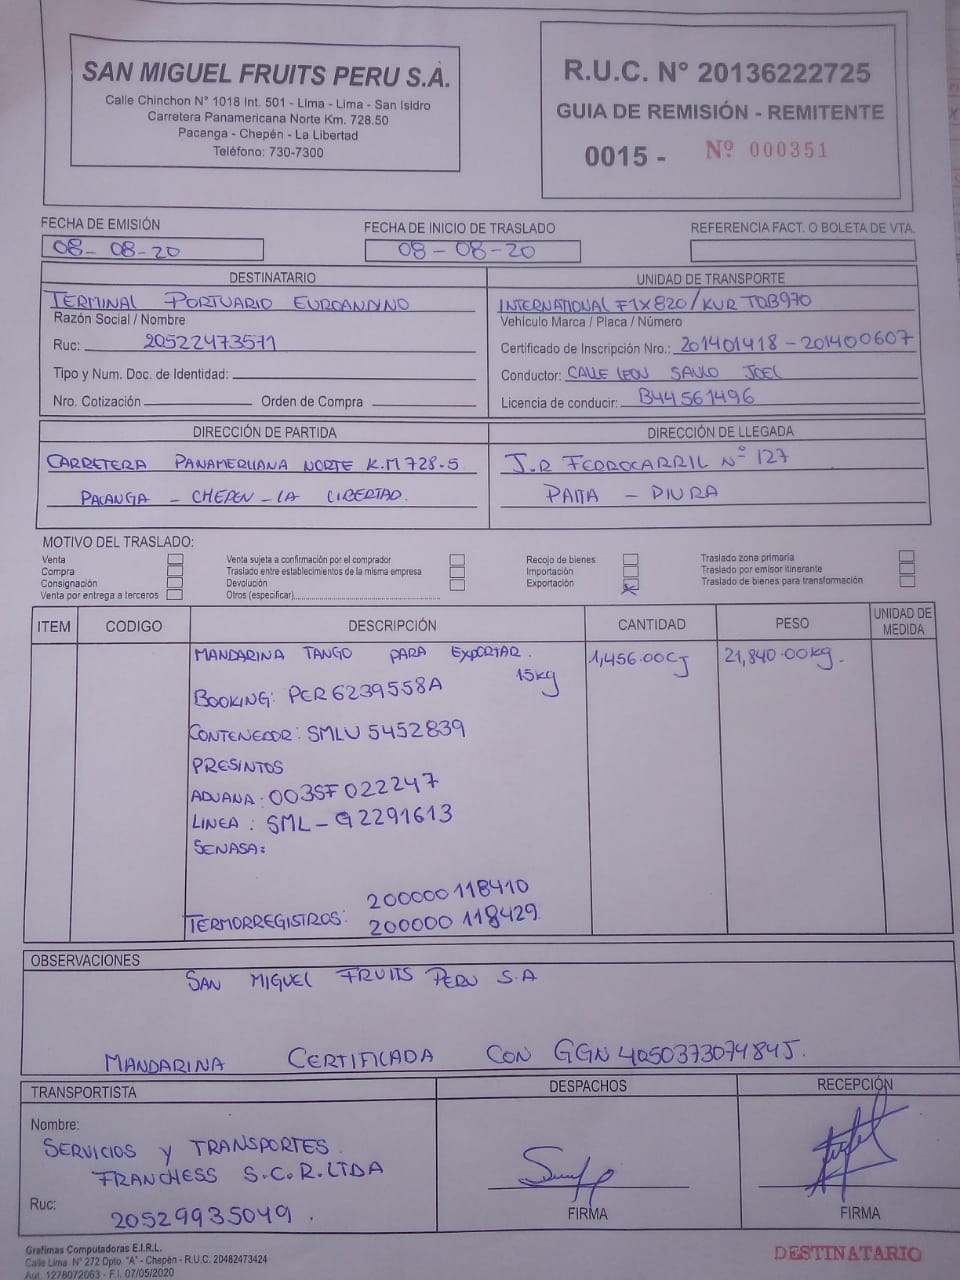 SAN MIGUEL FRUITS PERU S.A.
Calle Chinchon N° 1018 Int. 501 - Lima - Lima - San Isidro
Carretera Panamericana Norte Km. 728.50
Pacanga - Chepén - La Libertad
Teléfono: 730-7300
R.U.C. N° 20136222725
GUIA DE REMISIÓN - REMITENTE
0015 - Nº 000351
FECHA DE EMISIÓN
08-08-20
FECHA DE INICIO DE TRASLADO
08-08-20
REFERENCIA FACT. O BOLETA DE VTA.
DESTINATARIO
TERMINAL PORTUARIO EUROANDINO
Razón Social / Nombre
Ruc: 20522473571
Tipo y Num. Doc. de Identidad:
Nro. Cotización Orden de Compra
UNIDAD DE TRANSPORTE
INTERNATIONAL F1X820/KUR TQB970
Vehículo Marca / Placa / Número
Certificado de Inscripción Nro.: 201401418-201400607
Conductor: CALLE LEON SAULO JOEL
Licencia de conducir: B44561496
DIRECCIÓN DE PARTIDA
CARRETERA PANAMERICANA NORTE K.M 728.5
PACANGA - CHEPEN - LA LIBERTAD.
DIRECCIÓN DE LLEGADA
J.R FERROCARRIL N° 127
PAITA - PIURA
MOTIVO DEL TRASLADO:
Venta
Compra
Consignación
Venta por entrega a terceros
Venta sujeta a confirmación por el comprador
Traslado entre establecimientos de la misma empresa
Devolución
Otros (especificar)
Recojo de bienes
Importación
Exportación X
Traslado zona primaria
Traslado por emisor itinerante
Traslado de bienes para transformación
ITEM CODIGO DESCRIPCIÓN CANTIDAD PESO UNIDAD DE MEDIDA
MANDARINA TANGO PARA EXPORTAR. 1,456.00CJ 21,840.00kg.
15kg
BOOKING: PER6239558A
CONTENEDOR: SMLU 5452839
PRESINTOS
ADUANA: 003SF022247
LINEA : SML-G2291613
SENASA:
200000118410
TERMORREGISTROS: 200000118429
OBSERVACIONES
SAN MIGUEL FRUITS PERU S.A
MANDARINA CERTIFICADA CON GGN 4050373074845.
TRANSPORTISTA
Nombre:
SERVICIOS Y TRANSPORTES
FRANCHESS S.C.R.LTDA
Ruc:
20529935049.
DESPACHOS
FIRMA
RECEPCIÓN
FIRMA
Grafimas Computadoras E.I.R.L.
Calle Lima N° 272 Dpto. "A" - Chepén - R.U.C. 20482473424
Aut. 1278072063 - F.I. 07/05/2020
DESTINATARIO